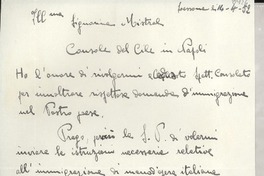 Ill.ma Signorina Mistral
Console del Cile in Napoli
Ho l'onore di rivolgermi a Spett. Consolato
per inoltrare rispettosa domanda d'immigrazione
nel Vostro paese.
Prego, perciò la S. V. di volermi
inviare le istruzioni necessarie relative
all'immigrazione di manodopera italiana